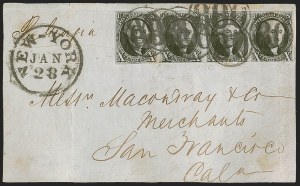 NEW-YORK
JAN
28
Messrs Macondray & Co
Merchants
San Francisco
Cala